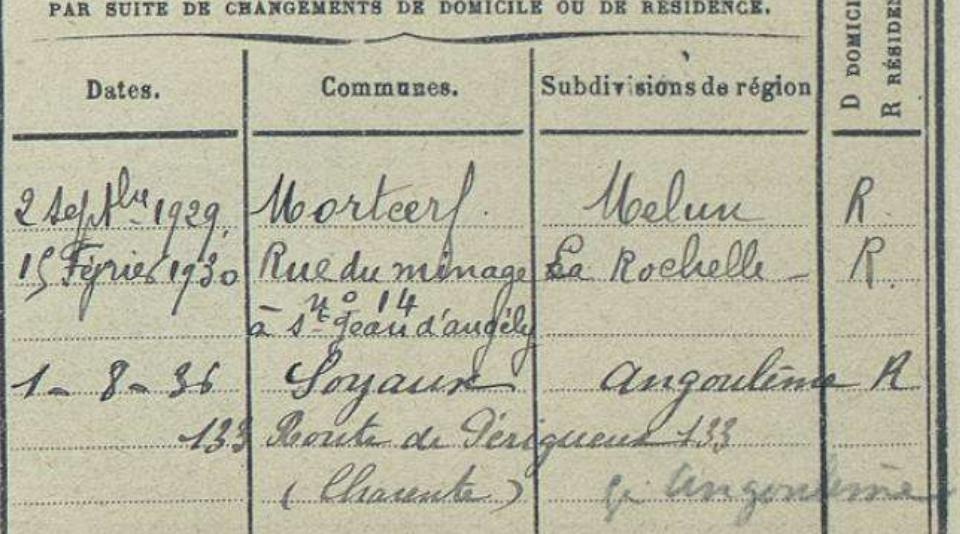 PAR SUITE DE CHANGEMENTS DE DOMICILE OU DE RÉSIDENCE.
Dates. Communes. Subdivisions de région D DOMICI
R RÉSIDEN
2 Septbre 1929. Mortcerf. Melun R.
15 Février 1930 Rue du minage La Rochelle - R.
n° 14
à St Jean d'angély
1 - 8 - 36 Soyaux Angoulême R
133 Route de Périgueux 133
(Charente) Angoulême